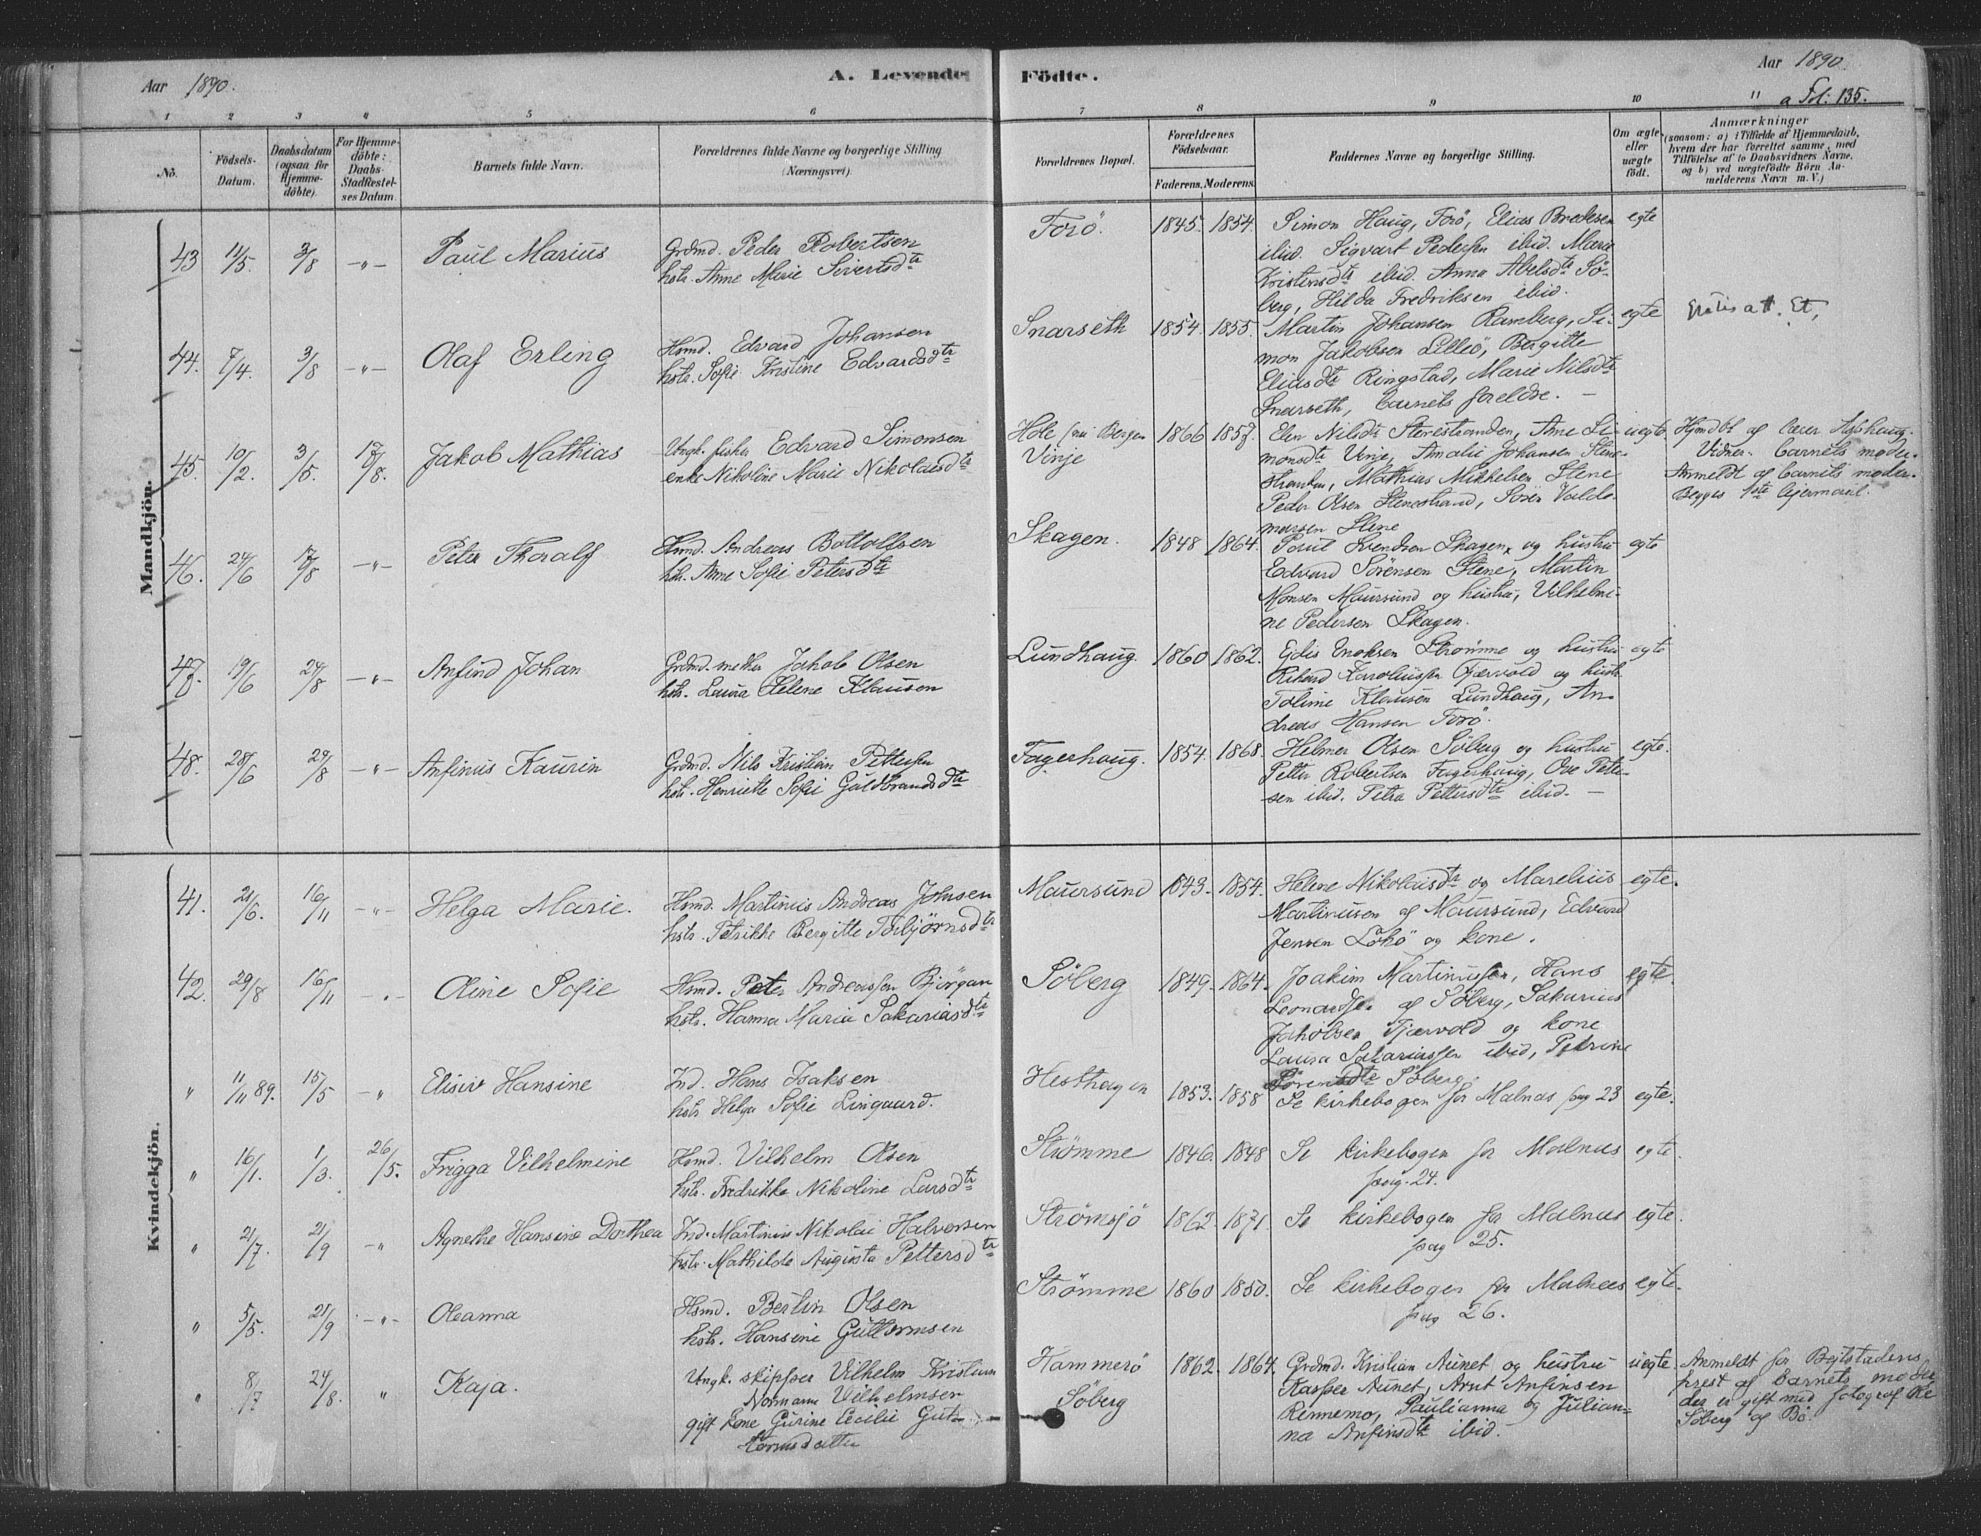 Aar 1890.
A. Levende Födte.
Aar 1890
a Fol: 135.
1 2 3 4 5 6 7 8 9 10 11
No.
Födsels-
Datum.
Daabsdatum
(ogsaa for
Hjemme-
döbte).
For Hjemme-
döbte:
Daabs-
Stadfæstel-
ses Datum.
Barnets fulde Navn.
Forældrenes fulde Navne og borgerlige Stilling
(Næringsvei).
Forældrenes Bopæl.
Forældrenes
Födselsaar.
Faderens. Moderens.
Faddernes Navne og borgerlige Stilling.
Om ægte
eller
uægte
födt.
Anmærkninger
(saasom: a) i Tilfælde af Hjemmedaab,
hvem der har forrettet samme, med
Tilföielse af to Daabsvidners Navne,
og b) ved uægtefödte Börn An-
melderens Navn m. V.)
Mandkjön.
43 11/5. 3/8 -"- Paul Marius
Grdmd. Peder Robertsen
hstr. Anne Marie Sivertsdtr
Forö. 1845. 1854.
Simon Haug, Forö, Elias Bredesen
ibid. Sigvart Pedersen ibid. Marie
Kristensdtr ibid. Anna Abelsdtr Sö-
berg, Hilda Fredriksen ibid.
egte
44. 7/4. 3/8 -"- Olaf Erling
Hsmd. Edvard Johansen
hstr. Sofie Kristine Edvardsdtr
Snarseth 1854. 1855.
Martin Johansen Ramberg, Si-
mon Jakobsen Lilleö, Bergitte
Eliasdtr Ringstad, Marie Nilsdtr
Snarseth, barnets foreldre. -
egte
att. Et,
45. 10/2. 3/5. 17/8. Jakob Mathias
Ungk. fisker Edvard Simonsen
enke Nikoline Marie Nikolaisdtr
Hole
Vinje 1866 1857.
Elen Nilsdtr Stenestranden, Ane Si-
monsdtr Vinje, Amalie Johansen Stene-
stranden, Mathias Mikkelsen Stene
Peder Olsen Stenestrand, Sören Valde-
marsen Stene
uegte
Hjmdbt af
Vidner. barnets moder.
Anmeldt af barnets moder.
Begges 1ste lejermaal.
46. 24/6 17/8 -"- Peter Thoralf
Hsmd. Andreas Bottolfsen
hstr. Anne Sofie Petersdtr
Skagen. 1848 1864.
Poul Svendsen Skagen og hustru
Edvard Sörensen Stene, Martin
Monsen Maursund og hustru, Vilhelmi-
ne Pedersen Skagen.
egte
47. 19/6 24/8 -"- Anfind Johan
Grdmd. Jakob Olsen
hstr. Laura Helene Klausen
Lundhaug. 1860 1862.
Edis Enoksen Strømme og hustru
Rikard Karoliussen Fjærvold og hustr.
Toline Klausen Lundhaug, An-
dreas Hansen Forö.
egte
48. 28/6 29/8 -"- Anfinus Kaurin
Grdmd. Nils Kristian Pettersen
hstr. Henriette Sofie Guldbrandsdtr
Fagerhaug. 1854. 1868.
Helmer Olsen Söberg og hustru
Petter Robertsen Fagerhaug, Ove Peter-
sen ibid. Petra Pettersdtr ibid. -
egte.
Kvindekjön.
41. 21/6. 16/11 -"- Helga Marie.
Hsmd. Martinus Andreas Johnsen
hstr. Petrikke Bergitte Torbjörnsdtr
Maursund 1843. 1854.
Helene Nikolaisdtr og Marelius
Martinusen af Maursund, Edvard
Jensen Lökö og kone.
egte.
42. 29/8 16/11 -"- Oline Sofie
Hsmd. Peter Andreassen Bjørgan
hstr. Hanna Maria Sakariasdtr
Söberg 1849. 1864.
Joakim Martinussen, Hans
Leonardsen af Söberg, Sakarias
Jakobsen Fjærvold og kone
Laura Sakariassen ibid, Petrine
Sörensdtr Söberg.
egte.
" 11/11 89. 15/5 -" Elisiv Hansine
Ind. Hans Isaksen
hstr. Helga Sofie Lingaard.
Hesthagen 1853. 1858
Se kirkebogen for Malnæs pag 23
egte.
" 16/1. 1/3. 26/5. Frigga Vilhelmine
Hsmd. Vilhelm Olsen
hstr. Fredrikke Nikoline Larsdtr
Strømme 1846. 1848
Se kirkebogen for Malnæs
pag. 24.
egte.
" 21/7. 21/9 -" Agnethe Hansine Dorthea
Ind. Martinus Nikolai Halvorsen
hstr. Mathilde Augusta Pettersdtr
Strømsjö 1862. 1871.
Se kirkebogen for Malnæs
pag 25.
egte.
" 5/5. 21/9 -"- Oleanna
Hsmd. Berlin Olsen
hstr. Hansine Guttormsen
Strømme 1860 1850.
Se kirkebogen for Malnæs
pag 26.
egte.
" 8/7 24/8. " Kaja.
Ungk. skipper Vilhelm Kristian
Normann Vilhelmsen
gift kone Gurine Cecilie Gut-
tormsdatter
Hammerö
Söberg 1862. 1864.
Grdmd. Kristian Aunet og hustru
Kasper Aunet, Arnt Anfinsen
Rennemo, Paulianna og Julian-
na Anfinsdtr ibid.
uegte.
Anmeldt for Bygstadens
prest af barnets moder
der er gift med fotograf
Söberg af Bö.